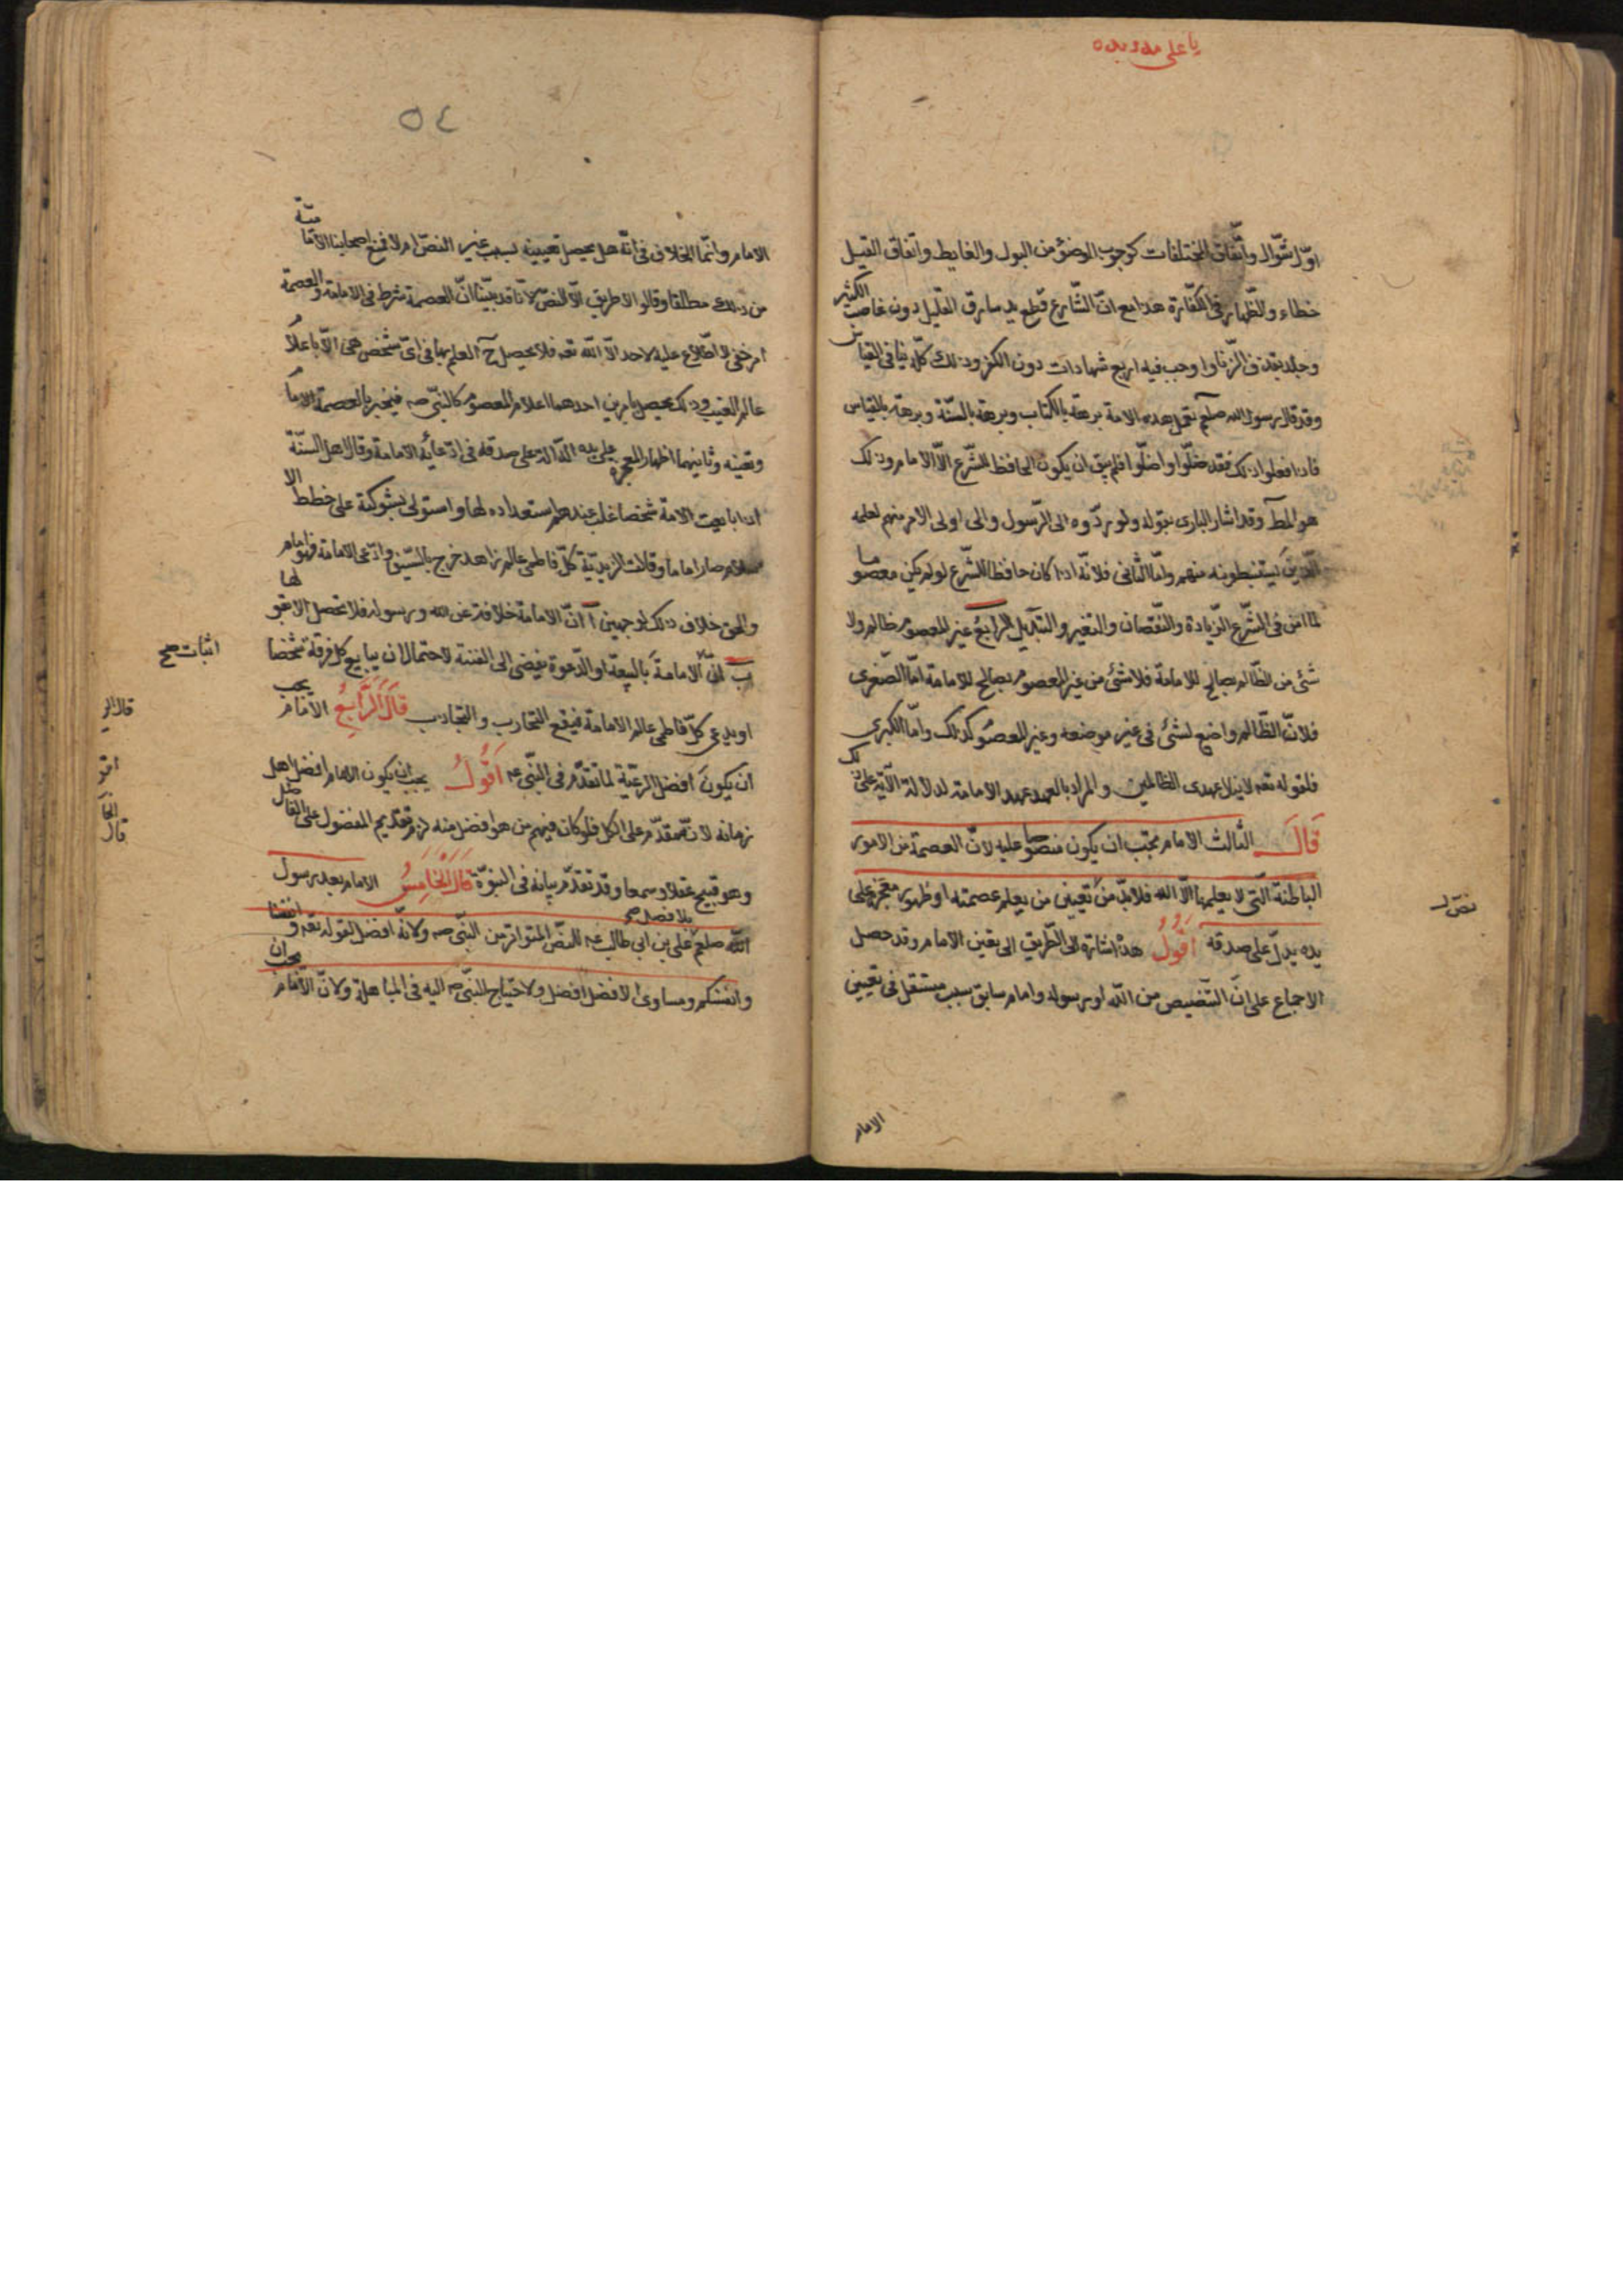 يا على مدد بده
اوّل شوّال واتّفاق المختلفات كوجوب الوضوء من البول والغايط واتفاق القتيل
خطاء والظّهار فى الكفّارة هذا مع انّ الشّارع قطع يد سارق القليل دون غاصب الكثير
وجلد بقذف الزنا واوجب فيه اربع شهادات دون الكفر وذلك كلّه ينافى القياس
وقد قال رسول الله صلعم تعمل هذه الامة برهة بالكتاب وبرهة بالسّنة وبرهة بالقياس
فاذا فعلوا ذلك فقد ضلّوا واضلّوا فلم يبق ان يكون الحافظ للشّرع الّا الامام وذلك
هو المط وقد اشار البارى بقوله ولو ردّوه الى الرّسول والى اولى الامر منهم لعلمه
الّذين يستنبطونه منهم وامّا الثّانى فلانّه اذا كان حافظا للشّرع لو لم يكن معصوما
لما امن فى الشّرع الزّيادة والنّقصان والتغير والتبديل الرابع غير المعصوم ظالم ولا
شئ من الظّالم بصالح للامامة فلا شئ من غير المعصوم بصالح للامامة امّا الصّغرى
فلانّ الظّالم واضع لشئ فى غير موضعه وغير المعصوم كذلك وامّا الكبرى
فلقوله تعه لا ينال عهدى الظالمين والمراد بالعهد عهد الامامة لدلالة الآية على ذلك
قال الثالث الامام يجب ان يكون منصوصا عليه لانّ العصمة من الامور
الباطنة الّتى لا يعلمها الّا الله فلا بدّ من تعيين من يعلم عصمته او ظهور معجزة على
يده يدلّ على صدقه اقول هذا اشارة الى الطّريق الى تعين الامام وقد حصل
الاجماع على انّ التنصيص من اللّه او رسوله وامام سابق سبب مستقل فى تعيين
الامام
نصّ
٥٤
الامام وانّما الخلاف فى انّه هل يحصل تعيينه بسبب غير النصّ ام لا فمنع اصحابنا الاماميّة
من ذلك مطلقا وقالوا لا طريق الّا النصّ لانّا قد بيّنّا انّ العصمة شرط فى الامامة والعصمة
امر خفى لا اطّلاع عليه لاحد الّا اللّه تعه فلا يحصل ح العلم بها فى اىّ شخص هى الّا باعلام
عالم الغيب وذلك يحصل بامرين احدهما اعلام المعصوم كالنبّى صه فيخبر بالعصمة الامام
وتعينه وثانيهما اظهار المعجزة على يده الدّالة على صدقه فى ادّعائه الامامة وقال اهل السنّة
اذا بايعت الامة شخصا غلب عندهم استعداده لها واستولى بشوكته على خطط الا
سلام صار اماما وقالت الزيديّة كلّ فاطمى عالم زاهد خرج بالسّيف وادّعى الامامة فهو امام
والحق خلاف ذلك لوجهين آ انّ الامامة خلافة عن الله ورسوله فلا تحصل الا بقولهما
ب انّ اثبات الامامة بالبيعة او الدّعوة يفضى الى الفتنة لاحتمال ان يبايع كل فرقة شخصا
او يدعى كلّ فاطمى عالم الامامة فيقع التحارب والتجاذب قال الرّابع الامام يجب
ان يكون افضل الرّعيّة لما تقدّم فى النبّى عه اقول يجب ان يكون الامام افضل اهل
زمانه لانّه مقدّم على الكل فلو كان فيهم من هو افضل منه لزم تقديم المفضول على الفاضل
وهو قبيح عقلا وسمعا وقد تقدّم بيانه فى النبوّة قال الخامس الامام بعد رسول
اللّه صلعم على بن ابى طالب عه بلا فصل للنصّ المتواتر من النبّى صه ولانّه افضل لقوله تعه وانفسنا
وانفسكم ومساوى الافضل افضل ولاحتياج النبّى صه اليه فى المباهلة ولانّ الامام يجب ان
اثبات صح